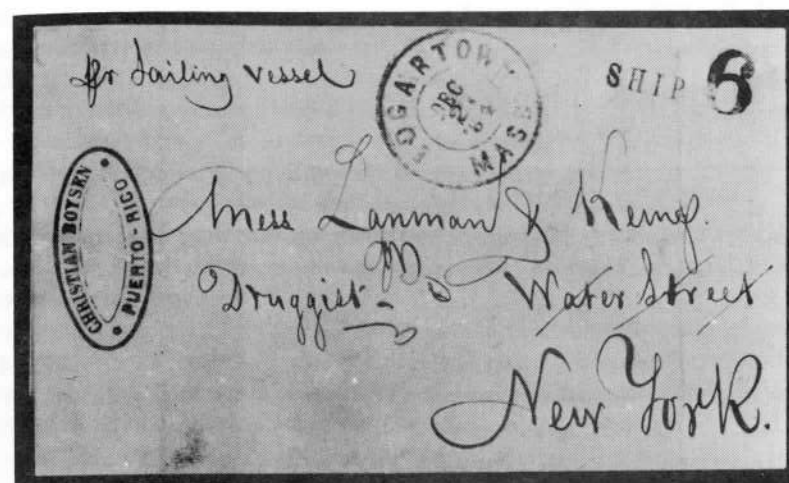 pr Sailing vessel
EDGARTOWN MASS
DEC
SHIP 6
CHRISTIAN BOYSEN
PUERTO-RICO
Mess Lanman & Kemp.
Druggist Water Street
New York.